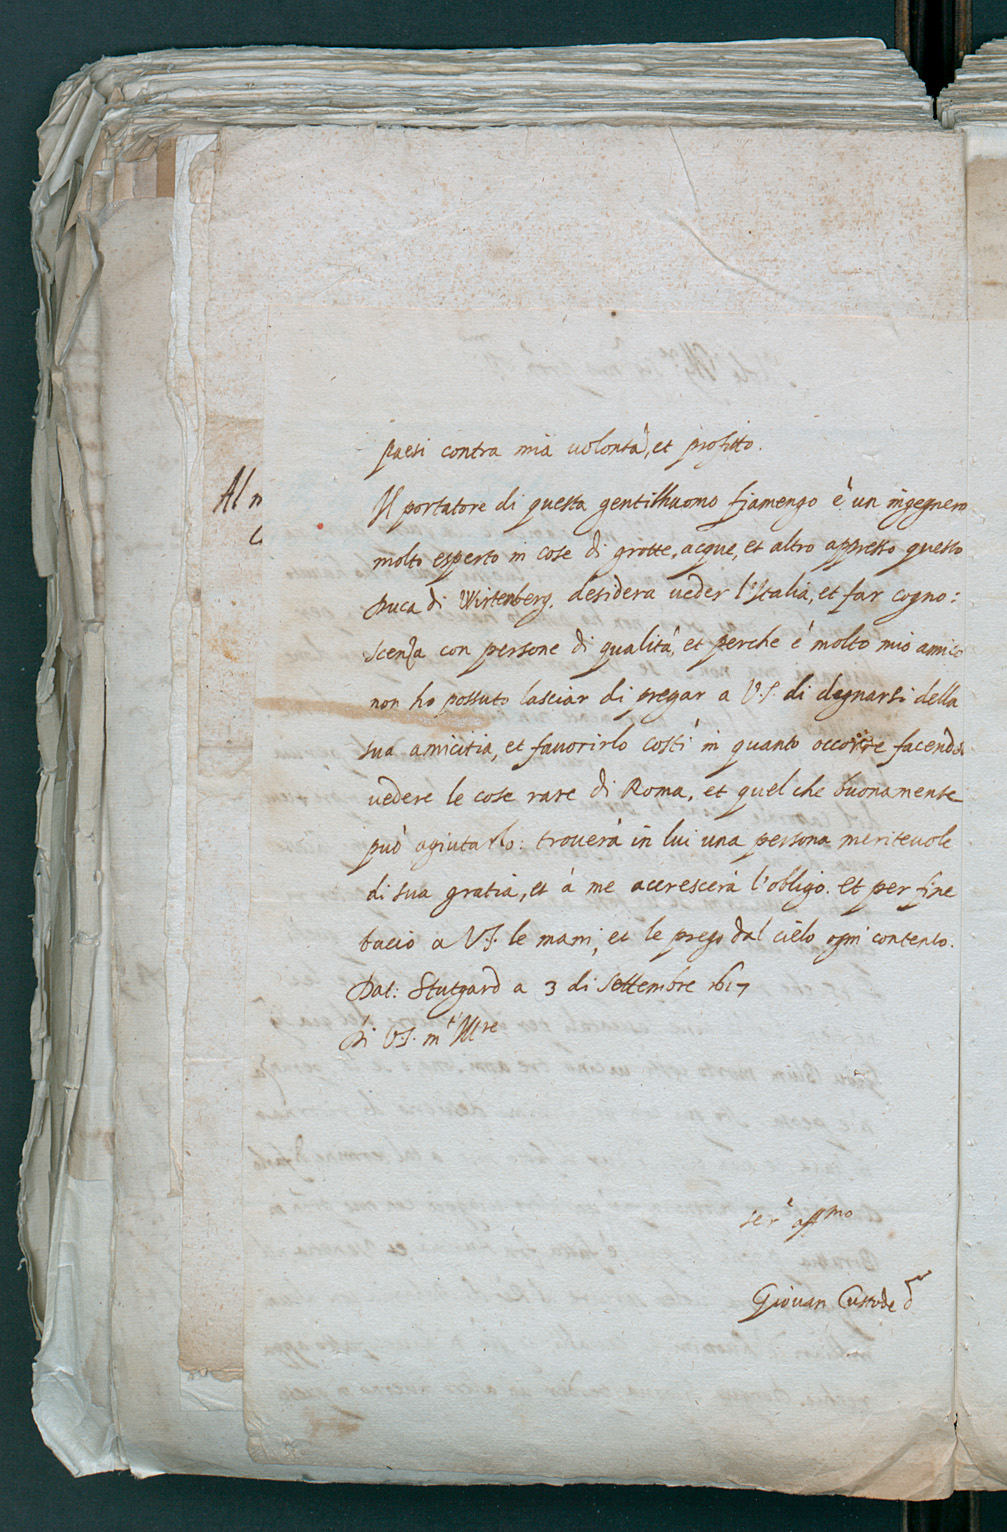 Al m
paesi contra mia uolontà, et profitto.
Il portatore di questa gentilhuomo fiamengo è un ingegnero
molto esperto in cose di grotte, acque, et altro appresso questo
Duca di Wirtenberg. desidera ueder l'Italia, et far cogno:
scenza con persone di qualità, et perche è molto mio amico
non ho possuto lasciar di pregar a V.S. di degnarsi della
sua amicitia, et fauorirlo costì in quanto occorre facendoli
uedere le cose rare di Roma, et quel che buonamente
può agiutarlo: trouerà in lui una persona meriteuole
di sua gratia, et à me accrescerà l'obligo. Et per fine
bacio a V.S. le mani, et le prego dal cielo ogni contento.
Dat: Stutgard a 3 di Settembre 1617
Di V.S. m.t Ill.re
ser.e aff.mo
Giouan Custode